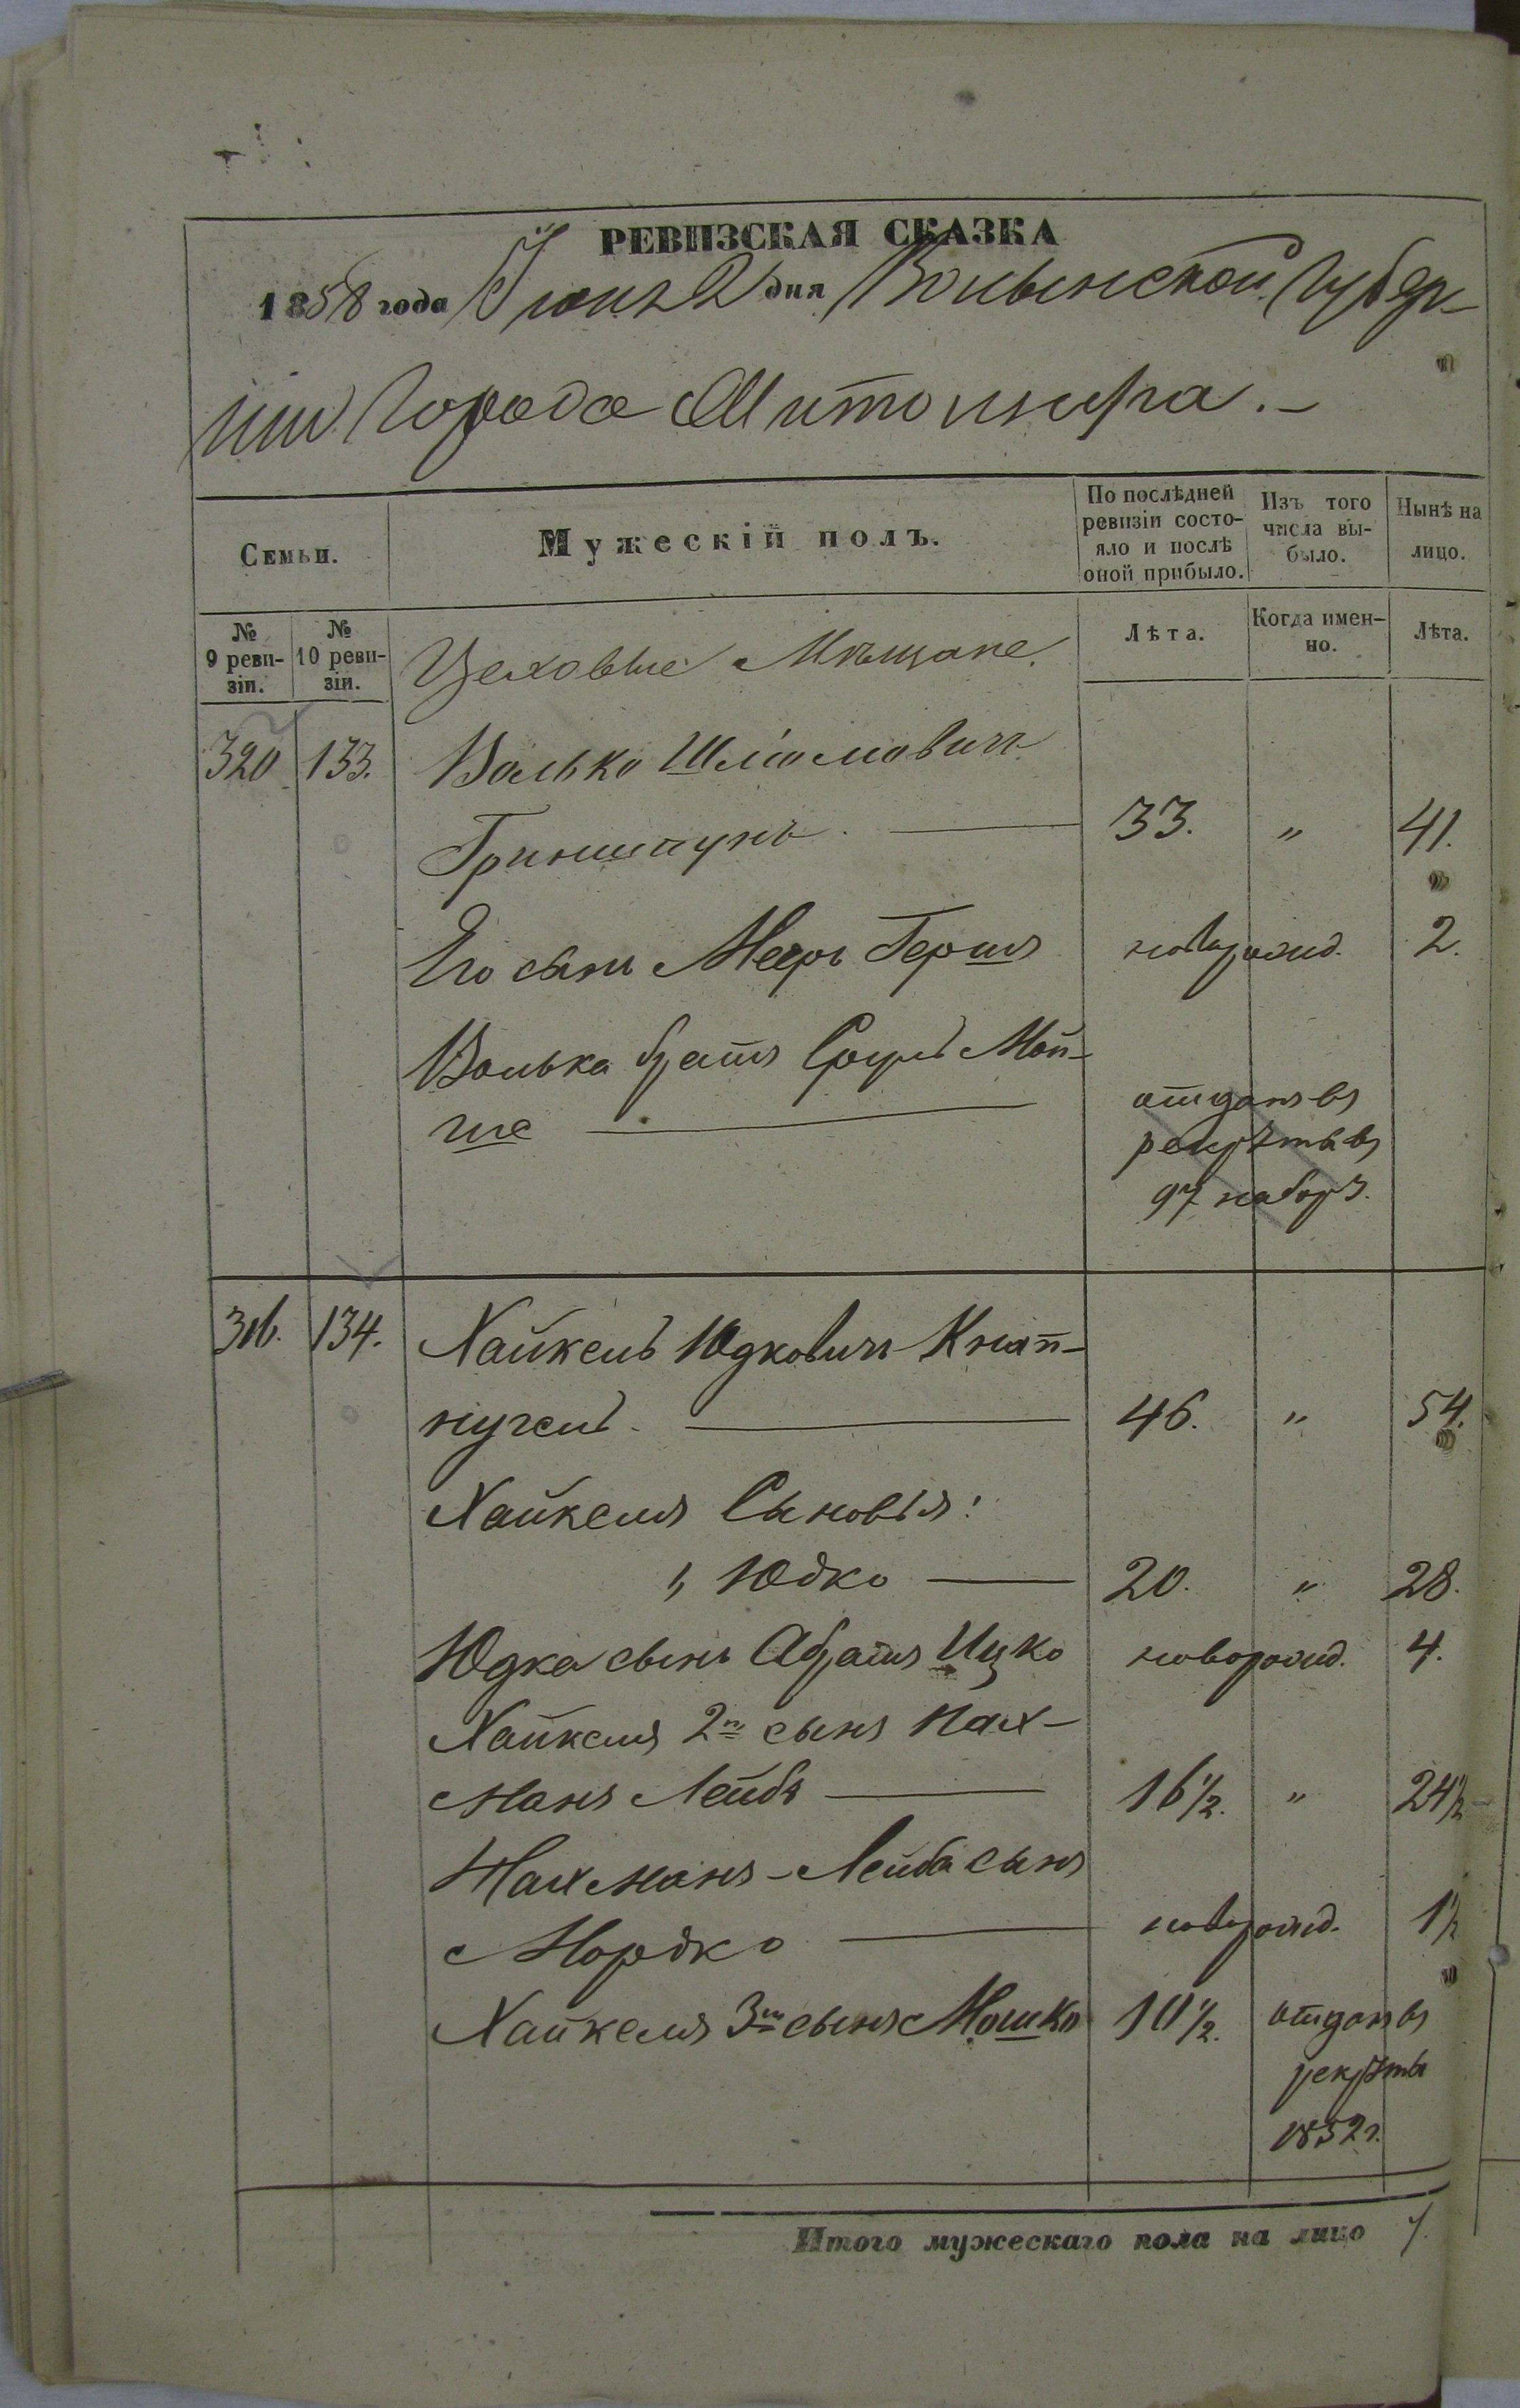 РЕВИЗСКАЯ СКАЗКА
1858 года Іюня 2 дня Волынской Губер-
ніи Города Житомира.-
Семьи.
Мужескій полъ.
По послѣдней ревизіи состо-
яло и послѣ оной прибыло.
Изъ того числа вы-
было.
Нынѣ на лицо.
№ 9 реви-
зіи.
№ 10 реви-
зіи.
Цеховые Мѣщане.
Лѣта.
Когда имен-
но.
Лѣта.
320 133. Волько Шліомовичъ
Гриншпунъ. 33. " 41.
Его сынъ Мееръ Гершъ новорожд. 2.
Волька братъ Сруль Мой-
ше
отданъ въ
рекруты въ
97 наборъ.
134. Хайкель Юдковичъ Кнап-
нугель. 46. " 54.
Хайкеля Сыновья:
" Юдко 20. " 28.
Юдка сынъ Абрамъ Ицко новорожд. 4.
Хайкеля 2й сынъ Нах-
манъ Лейба 16½. " 24½
Нахманъ-Лейба сынъ
Мордко новорожд. 1½
Хайкеля 3й сынъ Мошко 10½. отданъ въ
рекруты
1852г.
Итого мужескаго пола на лицо 7.